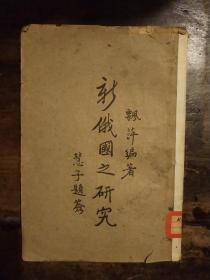 飄萍編著
新俄國之研究
慧子題簽